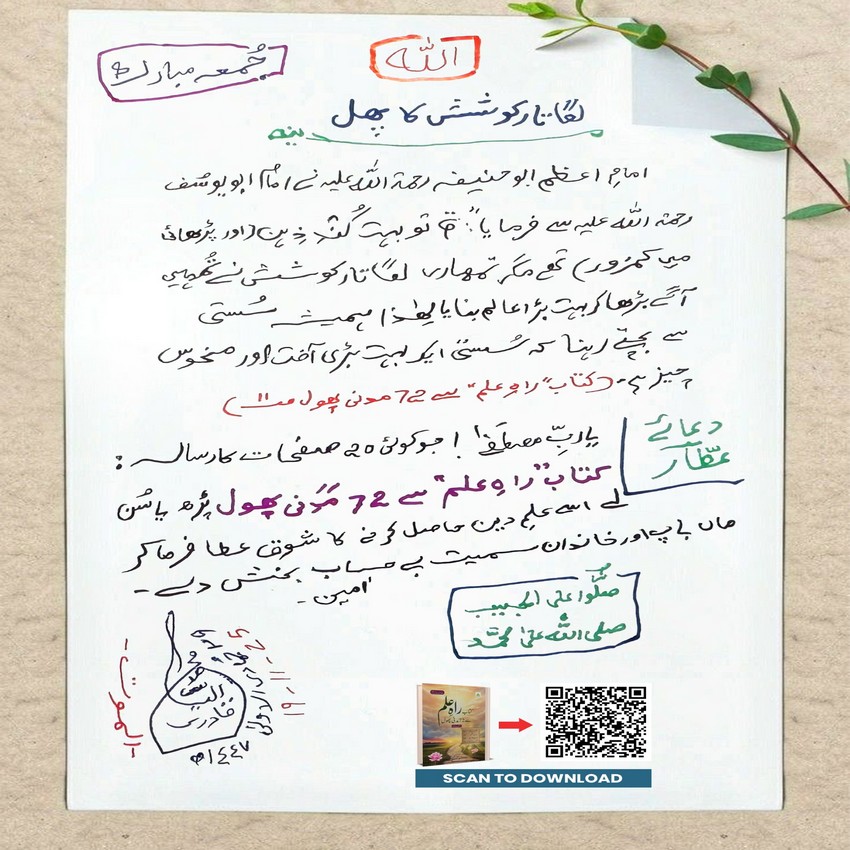 الله
جُمعہ مبارک
لگاتار کوشش کا پھل
مدینہ
امامِ اعظم ابو حنیفہ رحمۃ اللہ علیہ نے امام ابو یوسُف
رحمۃ اللہ علیہ سے فرمایا: تم تو بہت کُند ذِہن (اور پڑھائی
میں کمزور) تھے مگر تمہاری لگاتار کوشش نے تُمہیں
آگے بڑھا کر بہت بڑا عالم بنایا لہٰذا ہمیشہ سُستی
سے بچتے رہنا کہ سُستی ایک بہت بڑی آفت اور منحوس
چیز ہے۔ (کتاب "راہِ علم" سے 72 مدنی پھول صـ 11)
دعائے
عطّار
یاربِّ مصطَفٰے! جو کوئی 20 صفحات کا رسالہ:
کتاب "راہِ علم" سے 72 مَدَنی پھول پڑھ یا سُن
لے اسے علمِ دین حاصل کرنے کا شوق عطا فرما کر
ماں باپ اور خاندان سمیت بے حساب بخش دے۔
اٰمین۔
صلُّوا علی الحبیب
صلی اللہ علیٰ محمّد
الموت
قادری
١٤٤٧ھ
راہِ علم
SCAN TO DOWNLOAD